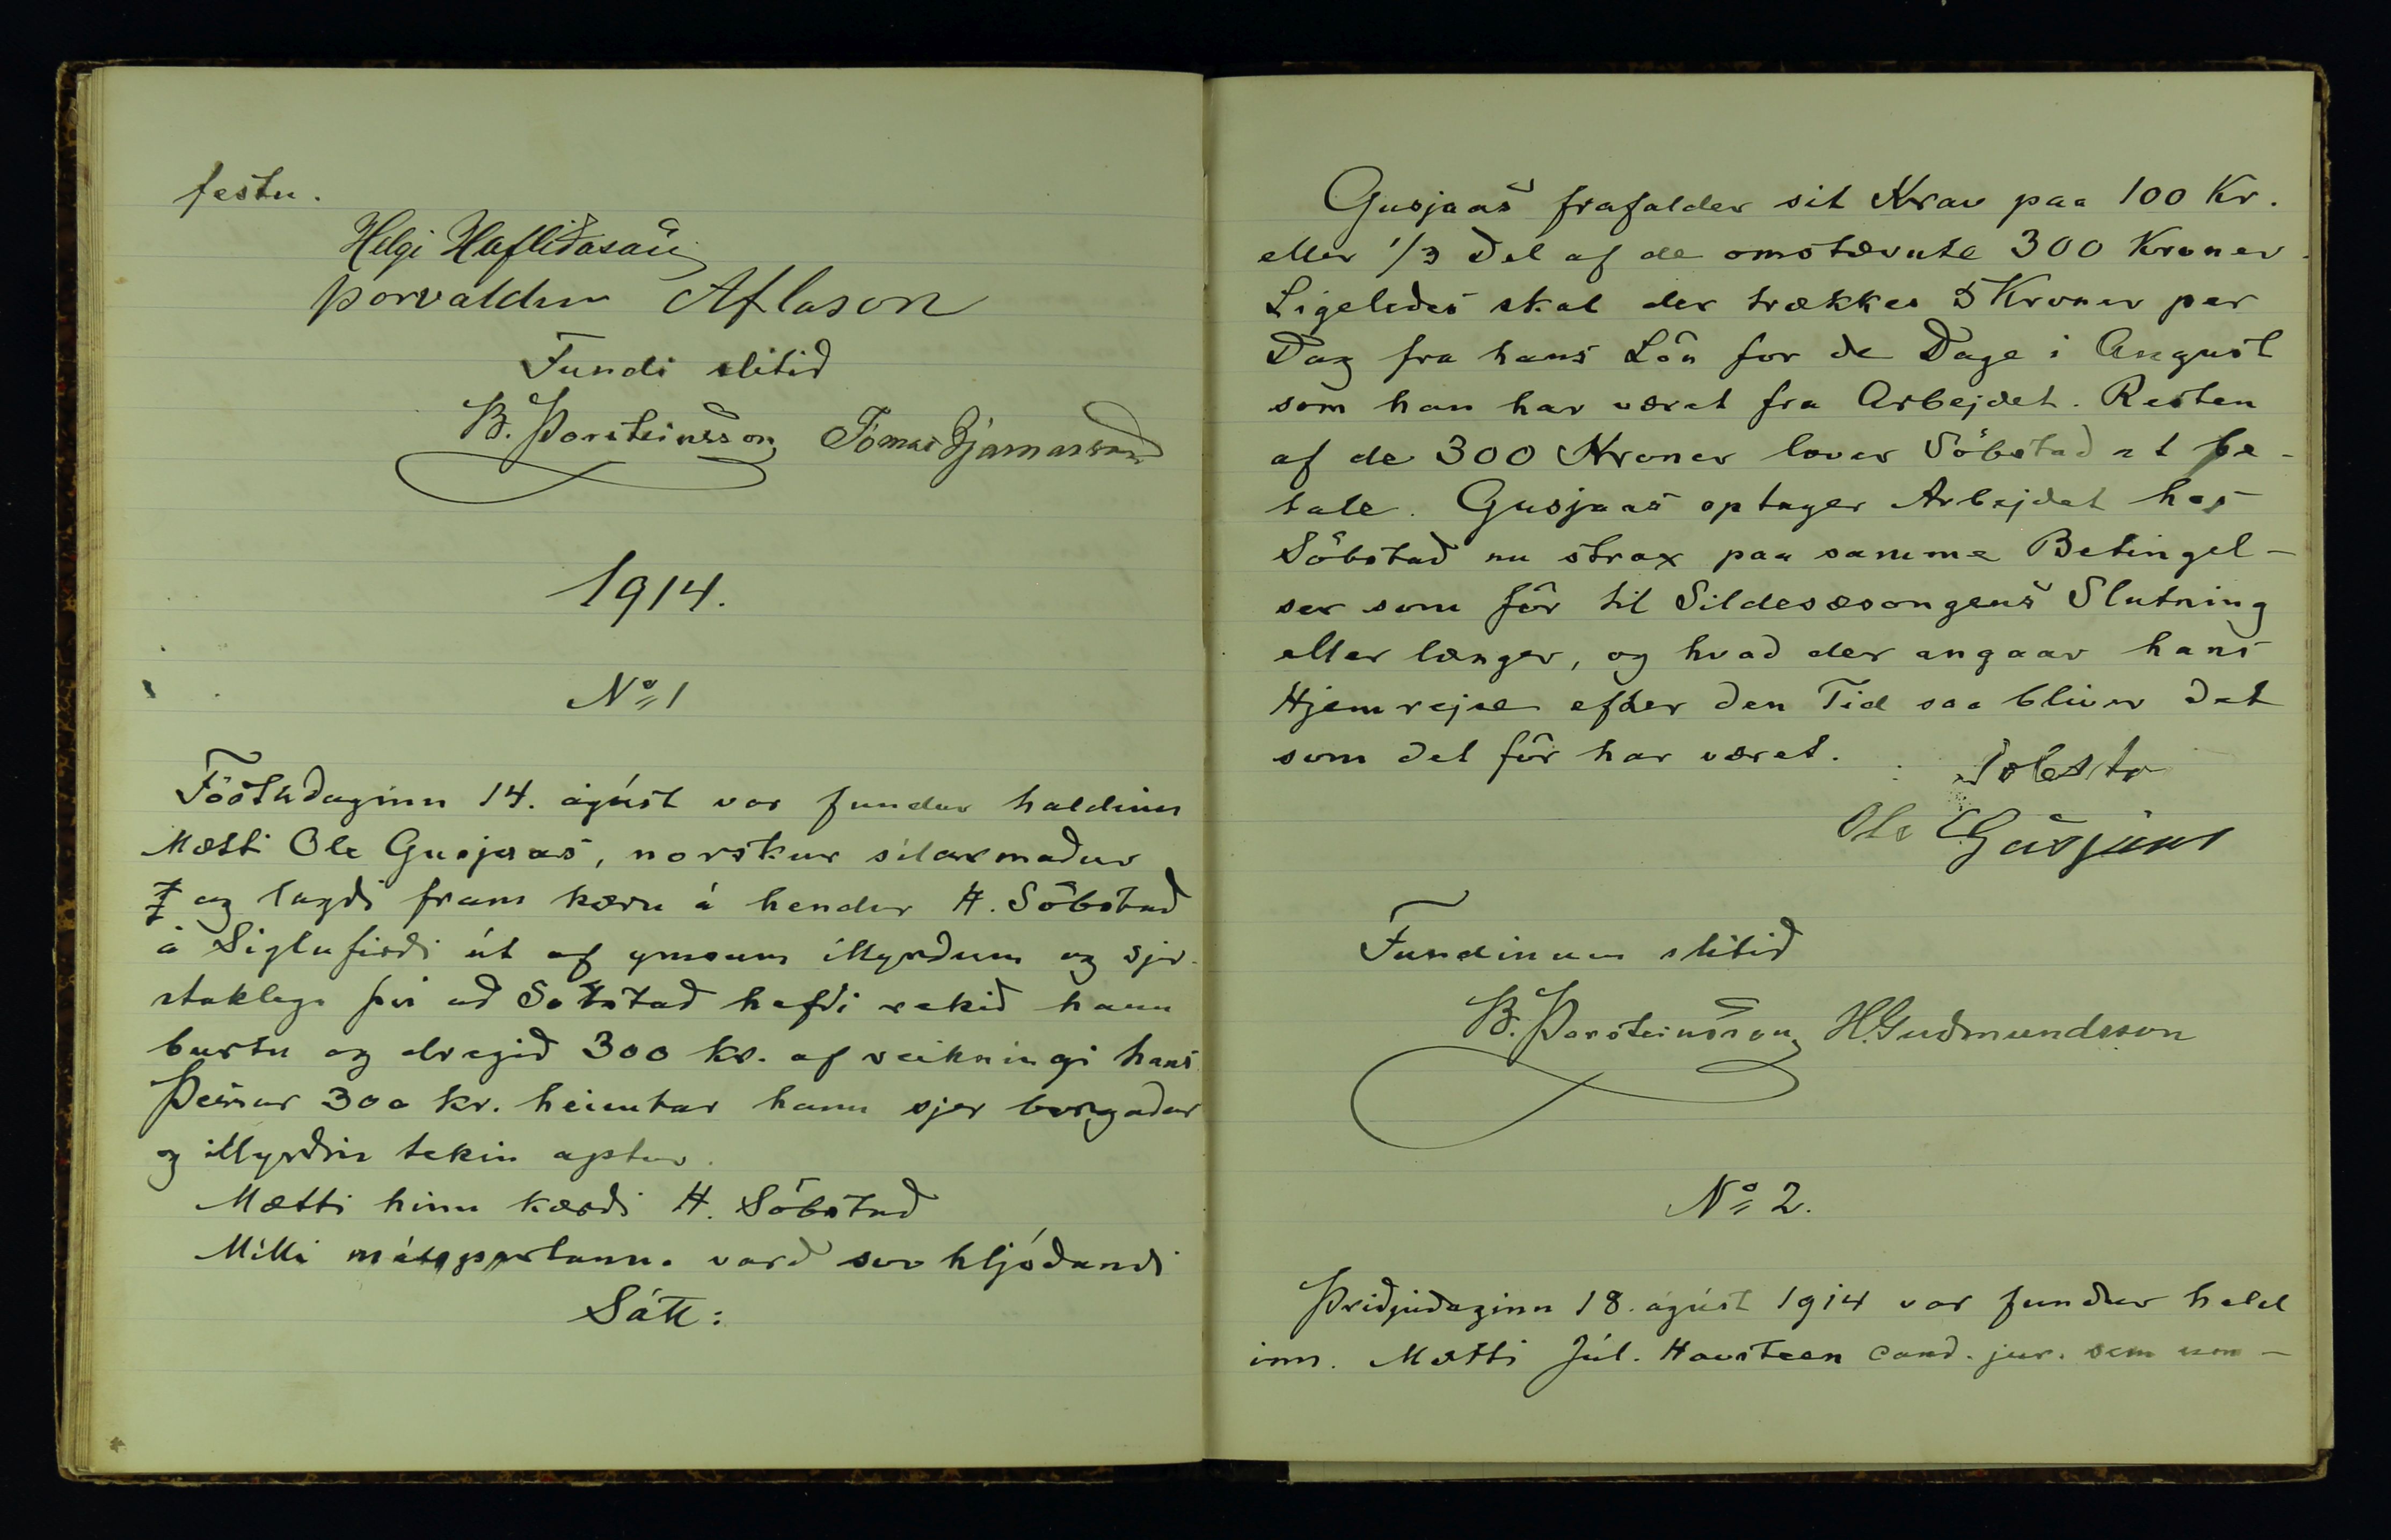 festu.
Helgi Hafliðason
Þorvaldur Atlason
Fundi slitið
B. Þorsteinsson Tómas Bjarnarson
1914.
No 1
Föstudaginn 14. ágúst var fundur haldinn
Mætti Ole Gusjaas, norskur síldarmaður
og lagði fram kæru á hendur H. Söbstað
á Siglufirði út af ymsum illyrðum og sjer-
staklega því að Sobstað hefði rekið hann
burtu og dregið 300 kr. af reikningi hans.
Þessar 300 kr. heimtar hann sjer borgaðar
og illyrðin tekin aptur.
Mætti hinn kærði H. Söbstað
Milli málspartanna varð svo hljóðandi
Sátt:
Gusjaas frafalder sit Krav paa 100 Kr.
eller 1/3 Del af de omstævnte 300 Kroner.
Ligeledes skal der trækkes 5 Kroner per
Dag fra hans Lön for de Dage i August
som han har været fra Arbejdet. Resten
af de 300 Kroner lover Söbstad at be-
tale. Gusjaas optager Arbejdet hos
Söbstað nu strax paa samme Betingel-
ser som för til Sildesæsongens Slutning
eller længer, og hvad der angaar hans
Hjemrejse efter den Tid saa bliver det
som det för har været.
Ole Gusjaas
Fundinum slitið
B. Þorsteinsson H. Guðmundsson
No 2.
Þriðjudaginn 18. ágúst 1914 var fundur hald
inn. Mætti Júl. Havsteen cand. jur. sem um-